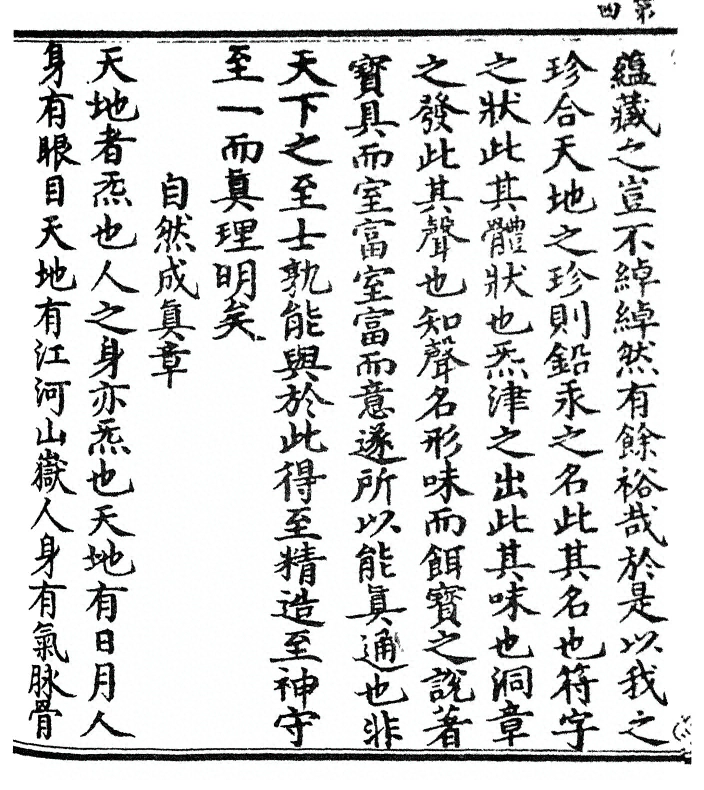 第四
蘊藏之豈不綽綽然有餘裕哉於是以我之
珍合天地之珍則鉛汞之名此其名也符字
之狀此其體狀也炁津之出此其味也洞章
之發此其聲也知聲名形味而餌寶之說著
寶具而室富室富而意遂所以能真通也非
天下之至士孰能與於此得至精造至神守
至一而真理明矣
自然成真章
天地者炁也人之身亦炁也天地有日月人
身有眼目天地有江河山嶽人身有氣脉骨